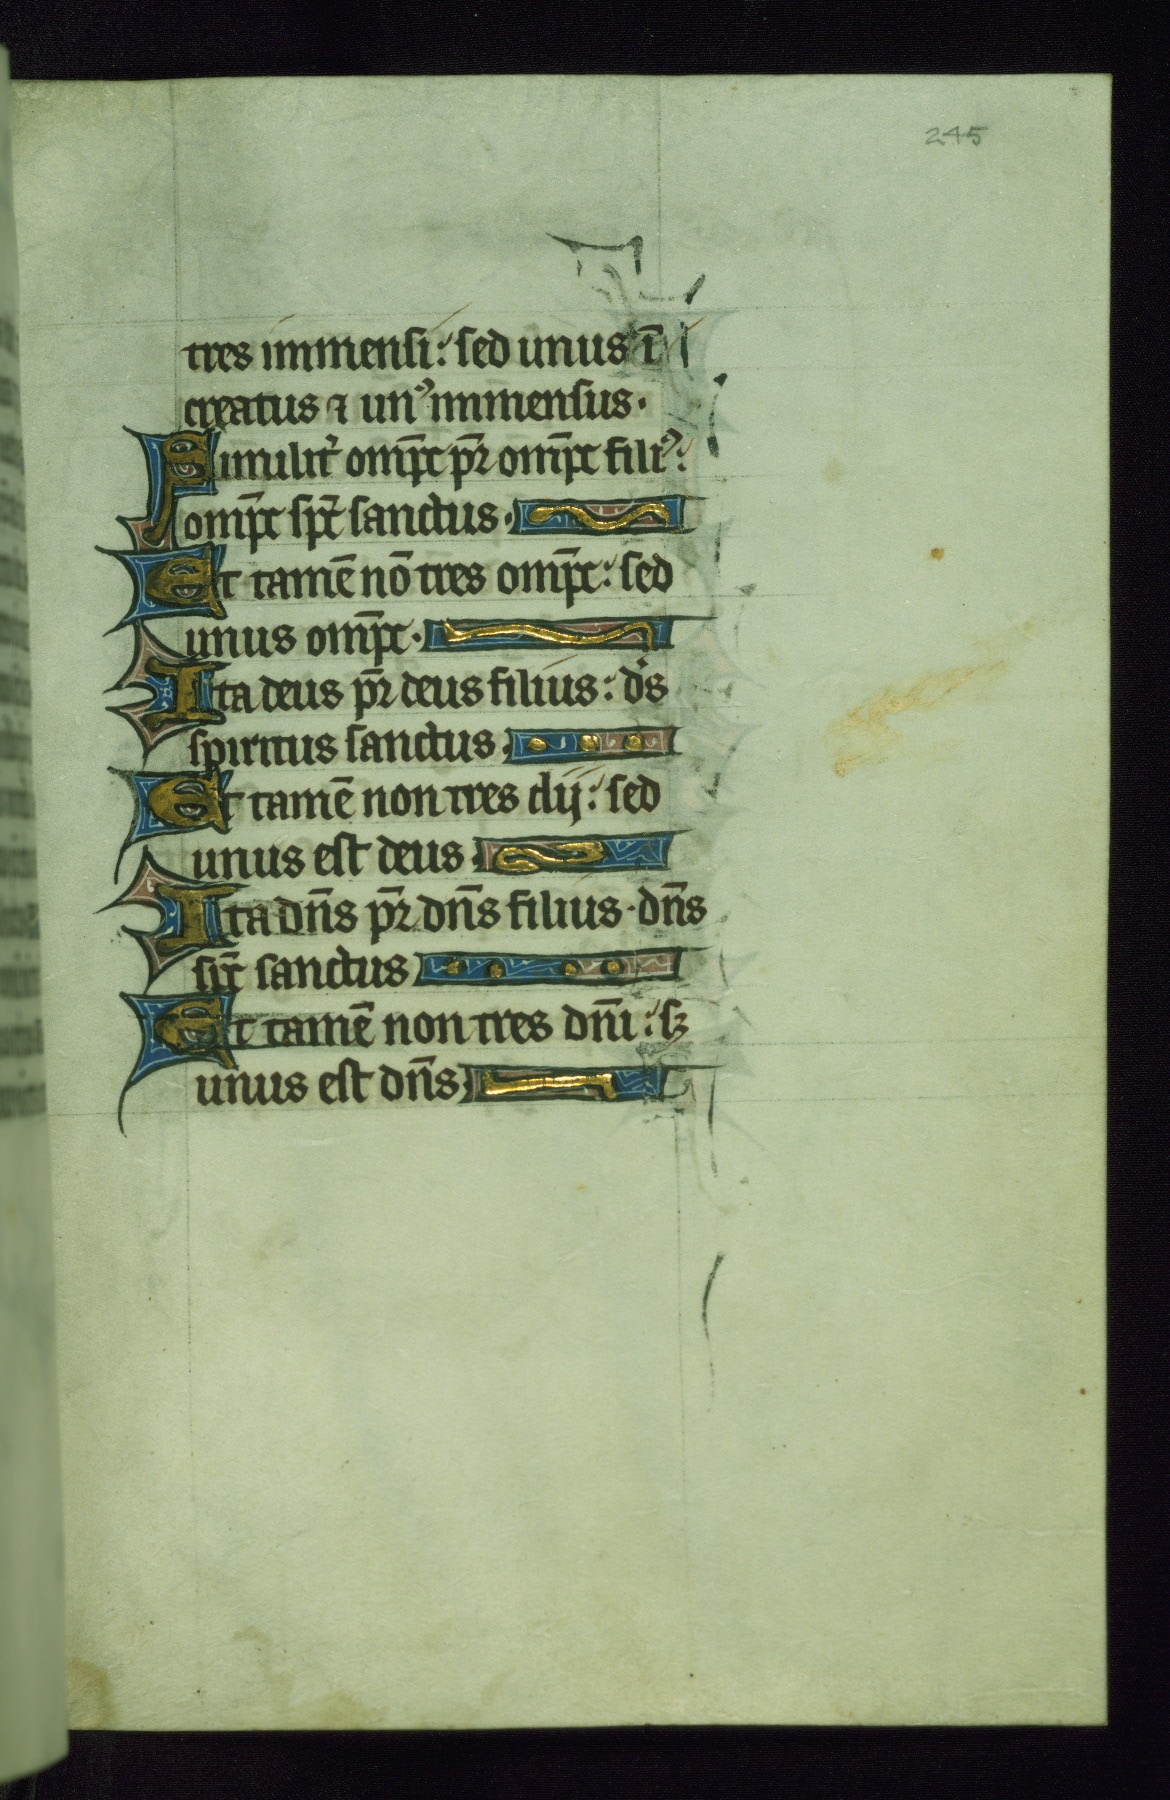 245
tres immensi: sed unus ī
creatus ⁊ unꝰ immensus.
Similit̉ omp̄c pr̄ omp̄c filiꝰ:
omp̄c sp̄c sanctus.
Et tamē nō tres omp̄c: sed
unus omp̄c.
Ita deus pr̄ deus filius: d̉s
spiritus sanctus.
Et tamē non tres dij: sed
unus est deus.
Ita dn̄s pr̄ dn̄s filius. dn̄s
sp̄c sanctus
Et tamē non tres dn̄i: sꝫ
unus est dn̄s.